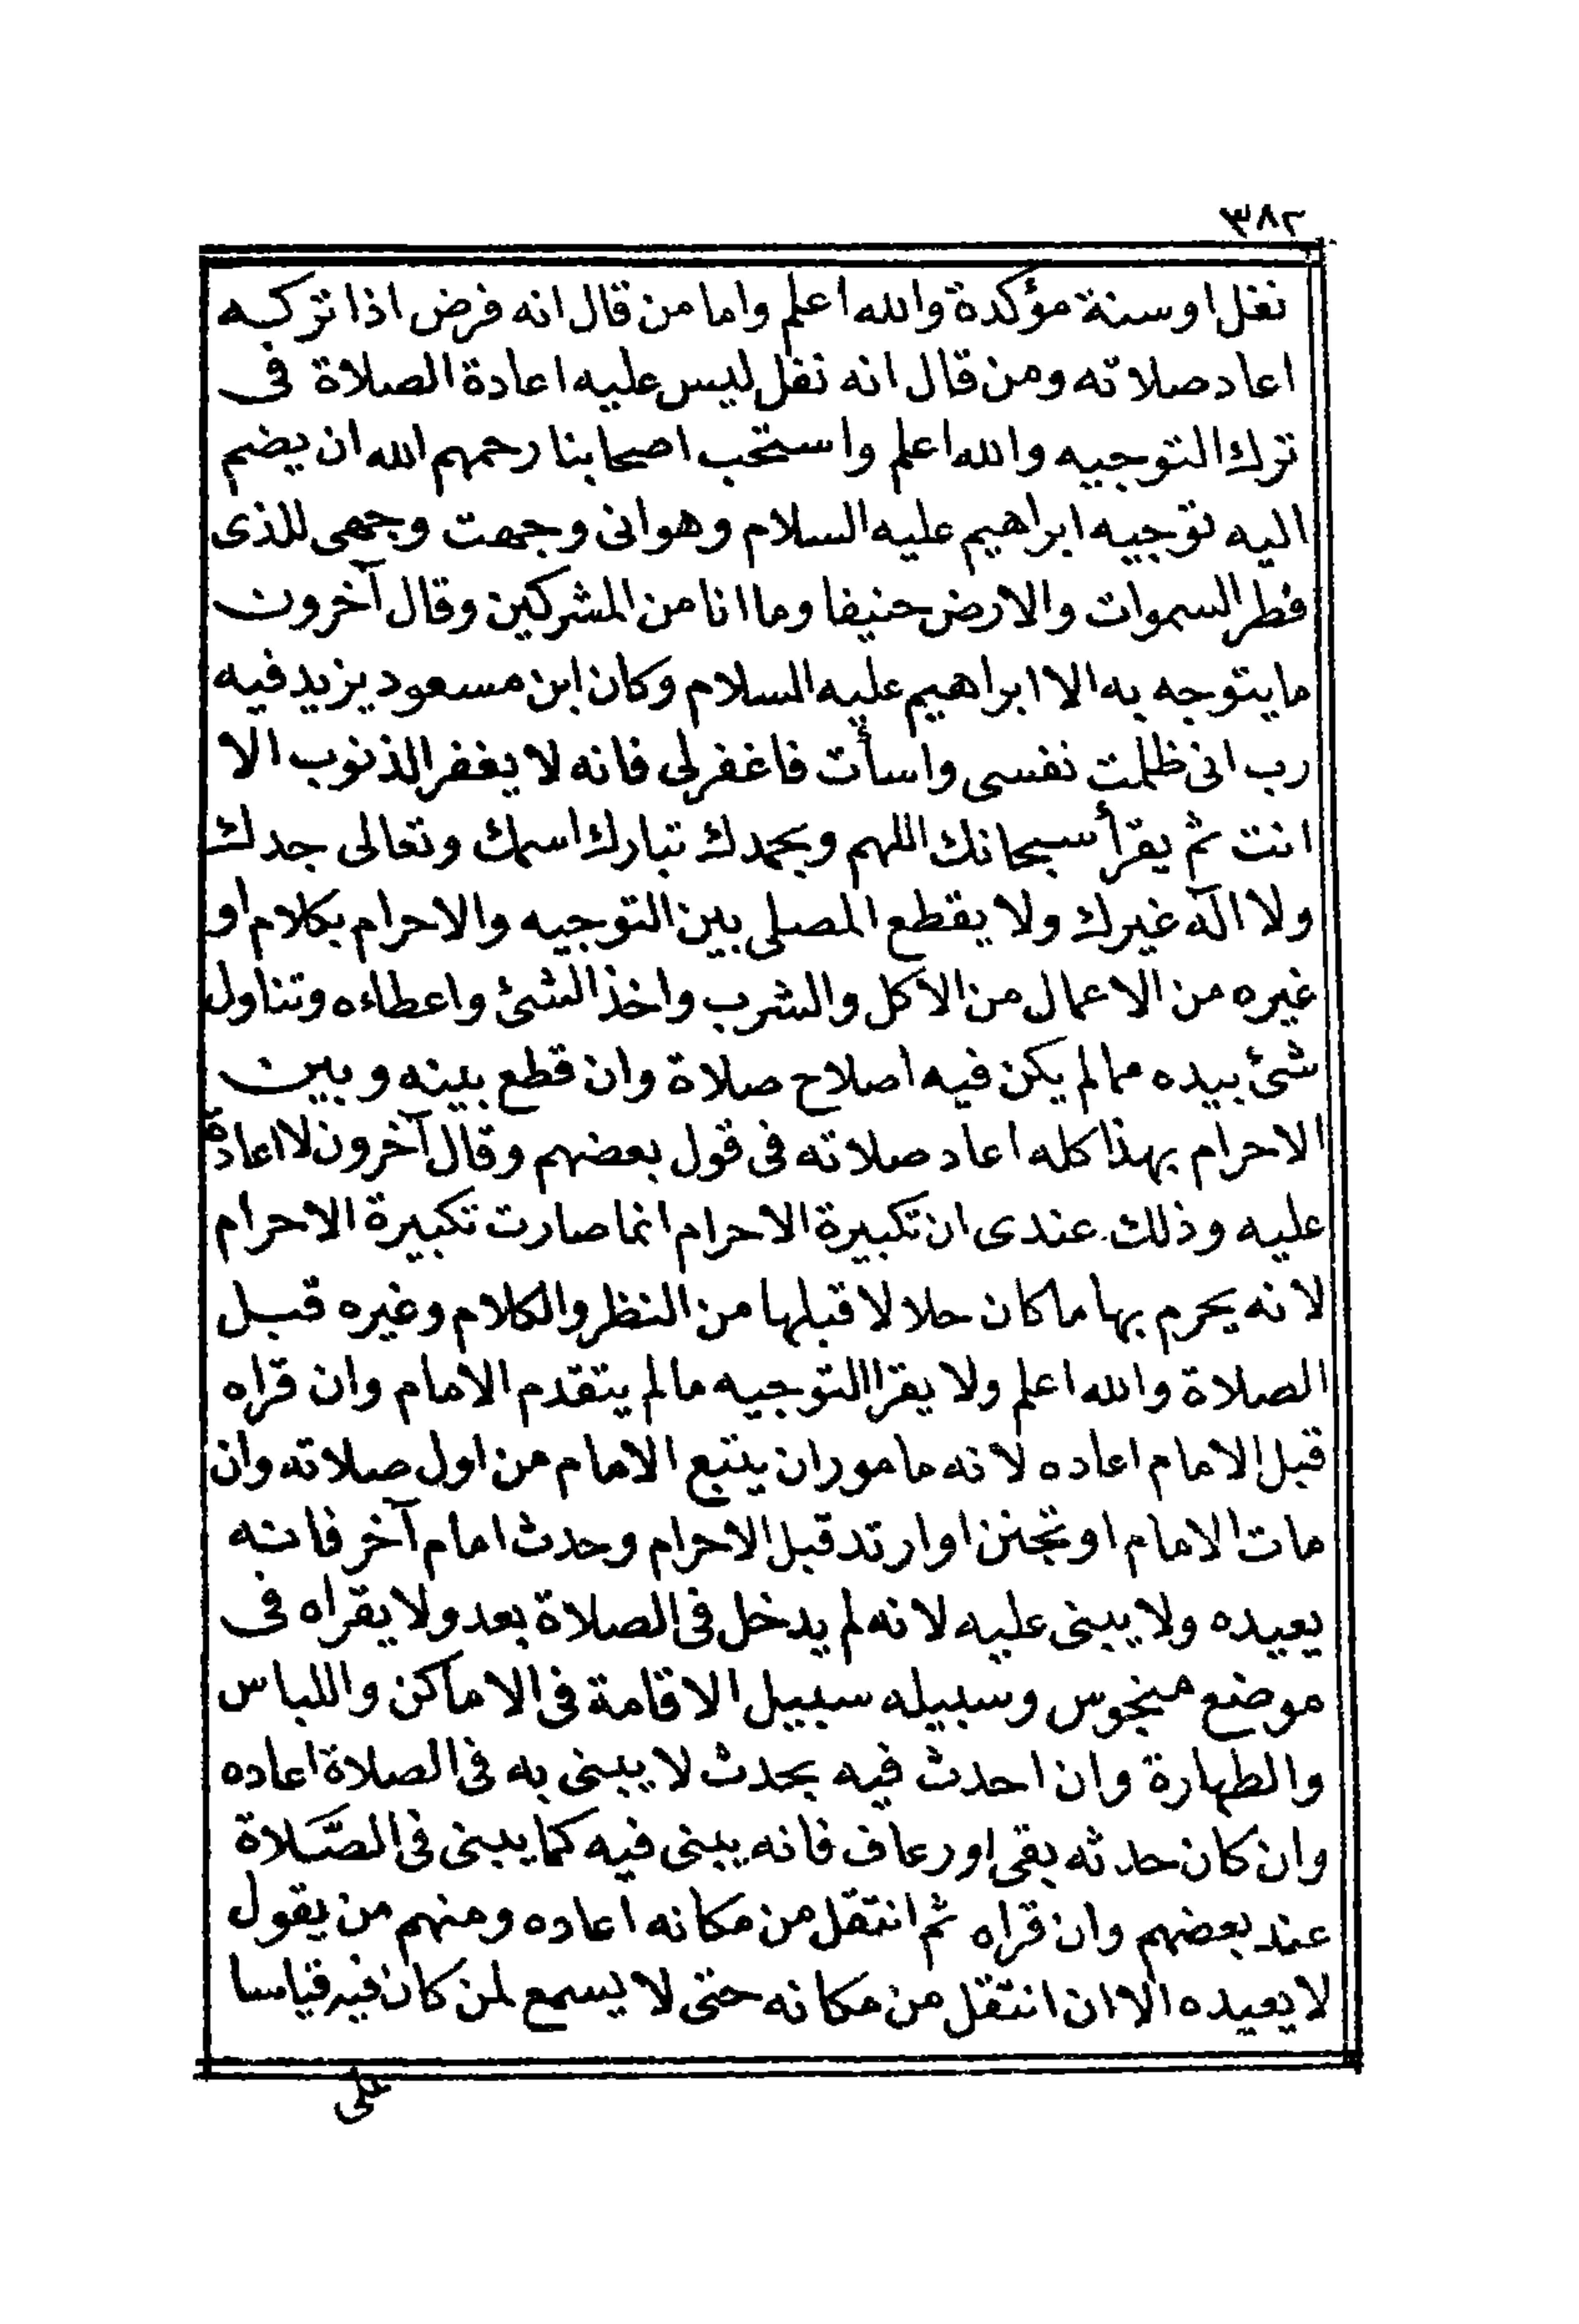 ٣٨٢
نفل او سنة مؤكدة والله اعلم واما من قال انه فرض اذا تركه
اعاد صلاته ومن قال انه نفل ليس عليه اعادة الصلاة فى
ترك التوجيه والله اعلم واستحب اصحابنا رحمهم الله ان يضم
اليه توجيه ابراهيم عليه السلام وهو انى وجهت وجهى للذى
فطر السموات والارض حنيفا وما انا من المشركين وقال آخرون
ما يتوجه به الا ابراهيم عليه السلام وكان ابن مسعود يزيد فيه
رب انى ظلمت نفسى واسأت فاغفر لى فانه لا يغفر الذنوب الا
انت ثم يقرأ سبحانك اللهم وبحمدك تبارك اسمك وتعالى جدك
ولا اله غيرك ولا يقطع المصلى بين التوجيه والاحرام بكلام او
غيره من الاعمال من الاكل والشرب واخذ الشئ واعطاءه وتناول
شئ بيده مما لم يكن فيه اصلاح صلاة وان قطع بينه وبين
الاحرام بهذا كله اعاد صلاته فى قول بعضهم وقال آخرون لا اعادة
عليه وذلك عندى ان تكبيرة الاحرام انما صارت تكبيرة الاحرام
لانه يحرم بها ما كان حلالا قبلها من النظر والكلام وغيره قبل
الصلاة والله اعلم ولا يقرا التوجيه ما لم يتقدم الامام وان قراه
قبل الامام اعاده لانه مامور ان يتبع الامام من اول صلاته وان
مات الامام او تجنن او ارتد قبل الاحرام وحدث امام آخر فانه
يعيده ولا يبنى عليه لانه لم يدخل فى الصلاة بعد ولا يقراه فى
موضع منجوس وسبيله سبيل الاقامة فى الاماكن واللباس
والطهارة وان احدث فيه بحدث لا يبنى به فى الصلاة اعاده
وان كان حدثه بقى او رعاف فانه يبنى فيه كما يبنى فى الصَّلاة
عند بعضهم وان قراه ثم انتقل من مكانه اعاده ومنهم من يقول
لا يعيده الا ان انتقل من مكانه حتى لا يسمع لمن كان فيه قياسا
على